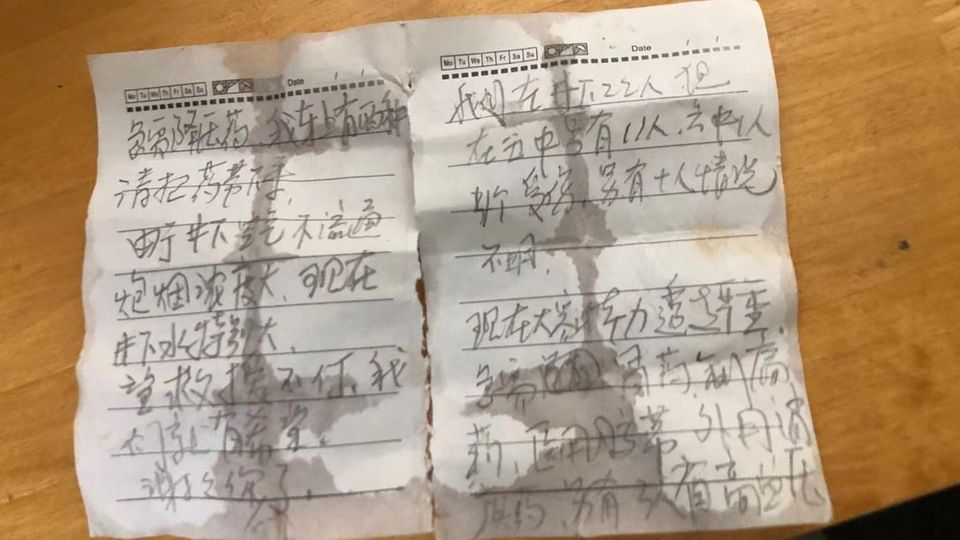 Mo Tu We Th Fr Sa Su Date
我们在井下22人 但
在五中另有11人.六中1人
受伤.另有十人情况
不明.
现在大 体力透支严重.
急需 胃药 痛
药.医用胶带 外用消
炎药.另有3人有高血压
Mo Tu We Th Fr Sa Su Date
急需降压药.我车上有两种
请把药带下来.
由于井下空气不流通
炮烟浓度大.现在
井下水特别大.
望救援不停.我
们就有希望.
谢谢 了.